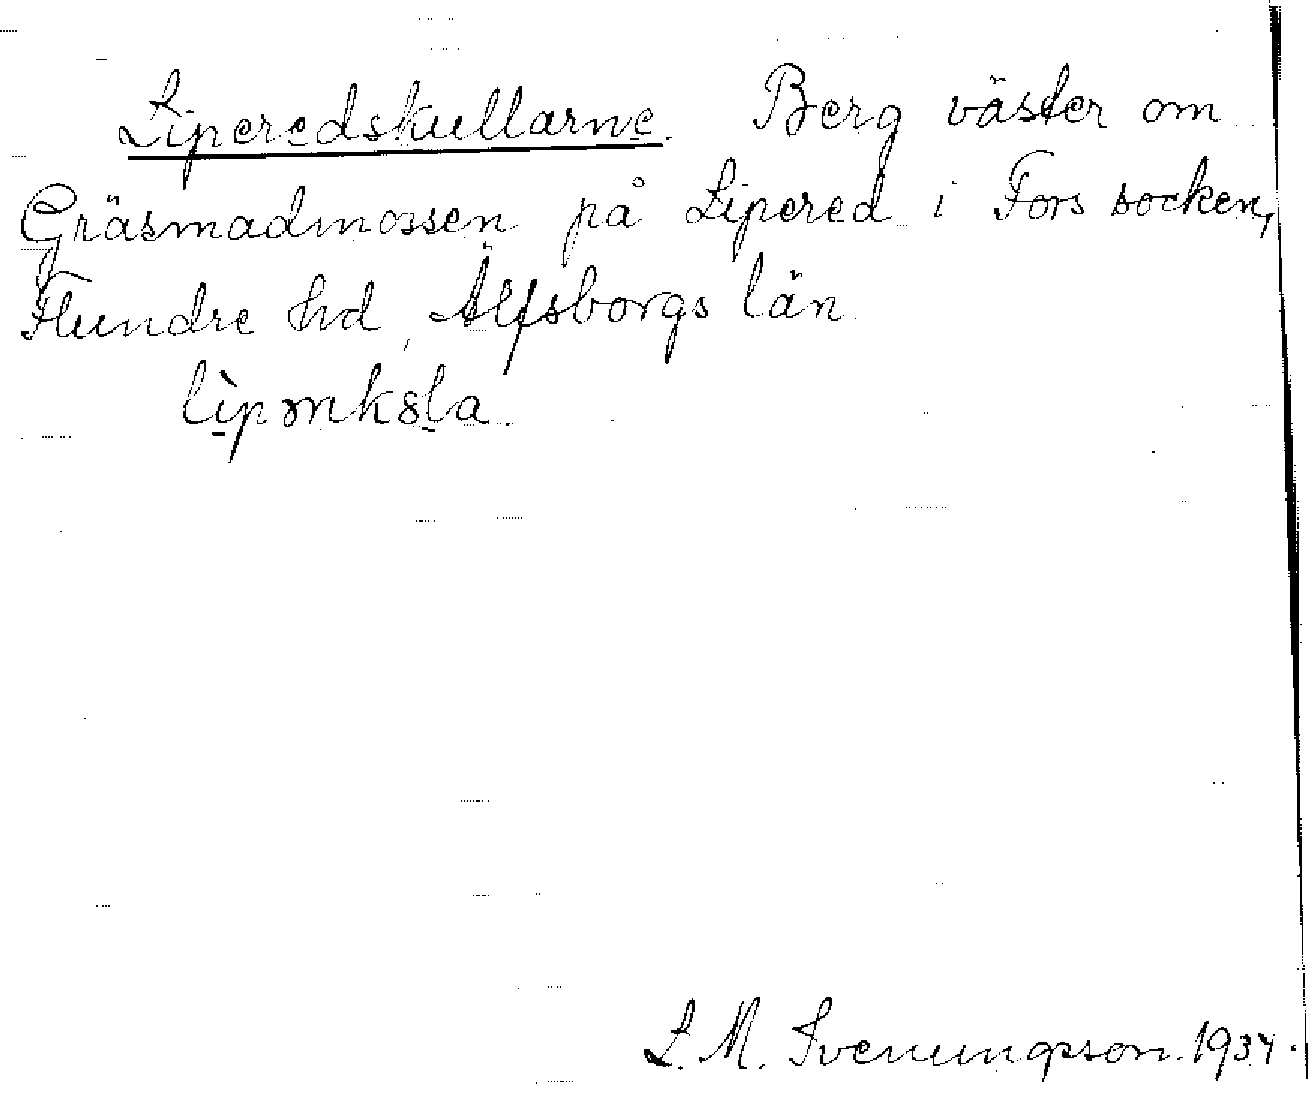 Liperedskullarne. Berg väster om
Gräsmadmossen på Lipered i Fors socken,
Flundre hd, Älfsborgs län
L. M. Svenungsson. 1934.